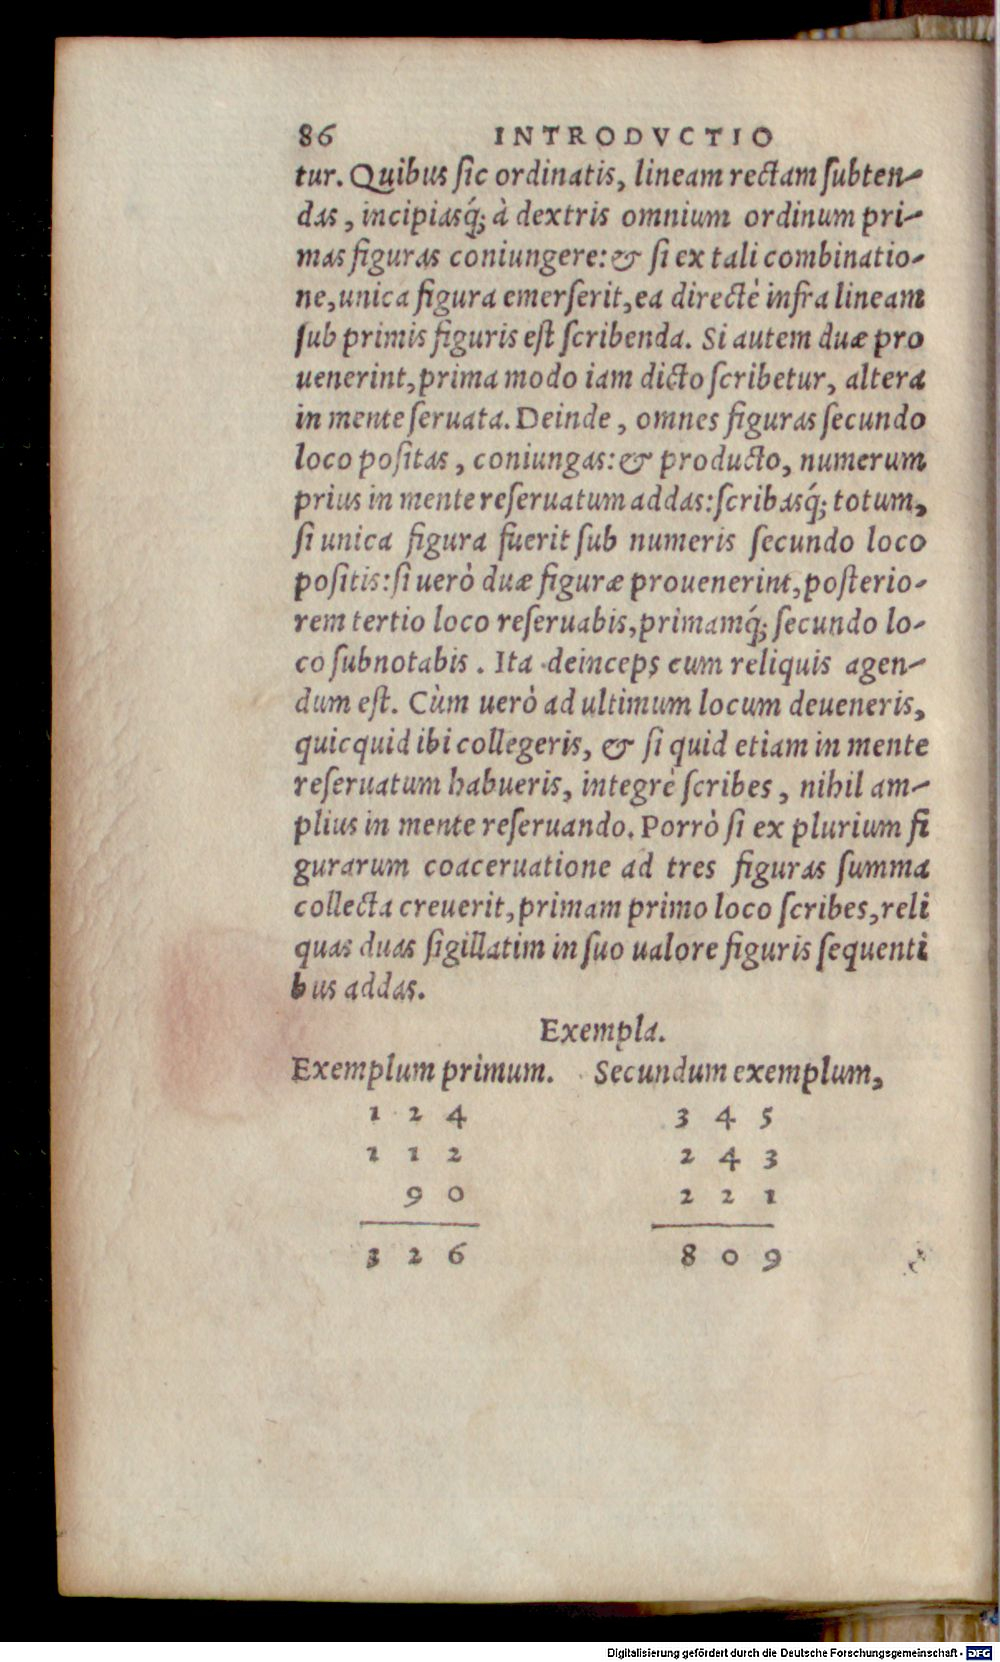 86 INTRODVCTIO
tur. Quibus ſic ordinatis, lineam rectam ſubten-
das, incipiasq́; à dextris omnium ordinum pri-
mas figuras coniungere: & ſi ex tali combinatio-
ne, unica figura emerſerit, ea directè infra lineam
ſub primis figuris eſt ſcribenda. Si autem duæ pro
uenerint, prima modo iam dicto ſcribetur, altera
in mente ſeruata. Deinde, omnes figuras ſecundo
loco poſitas, coniungas: & producto, numerum
prius in mente reſeruatum addas: ſcribasq́; totum,
ſi unica figura fuerit ſub numeris ſecundo loco
poſitis: ſi uerò duæ figuræ prouenerint, poſterio-
rem tertio loco reſeruabis, primamq́; ſecundo lo-
co ſubnotabis. Ita deinceps cum reliquis agen-
dum eſt. Cùm uerò ad ultimum locum deueneris,
quicquid ibi collegeris, & ſi quid etiam in mente
reſeruatum habueris, integrè ſcribes, nihil am-
plius in mente reſeruando. Porrò ſi ex plurium fi
gurarum coaceruatione ad tres figuras ſumma
collecta creuerit, primam primo loco ſcribes, reli
quas duas ſigillatim in ſuo ualore figuris ſequenti
bus addas.
Exempla.
Exemplum primum. Secundum exemplum,
1 2 4 3 4 5
1 1 2 2 4 3
9 0 2 2 1
3 2 6 8 0 9
Digitalisierung gefördert durch die Deutsche Forschungsgemeinschaft - DFG